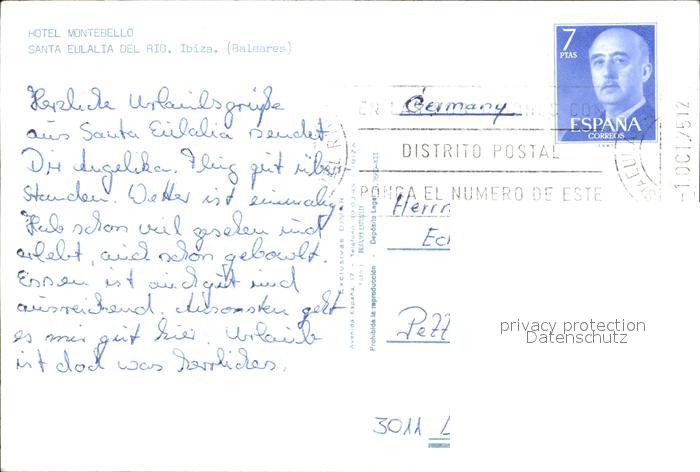 HOTEL MONTEBELLO
SANTA EULALIA DEL RIO. Ibiza. (Baleares)
Herzliche Urlaubsgrüße
aus Santa Eulalia sendet
Dir Angelika. Flug gut über-
standen. Wetter ist einmalig.
Hab schon viel gesehen und
erlebt, auch schon gebowlt.
Essen ist auch gut und
ausreichend. Ansonsten geht
es mir gut hier. Urlaub
ist doch was herrliches.
Exclusivas
Avenida España, 17 - Teléfono
Prohibida la reproducción - Depósito Legal
7
PTAS
ESPAÑA
CORREOS
DISTRITO POSTAL
PONGA EL NUMERO DE ESTE
-1 OCT. 75 12
Germany
Herrn
Ec
Pett
3011 L
privacy protection
Datenschutz